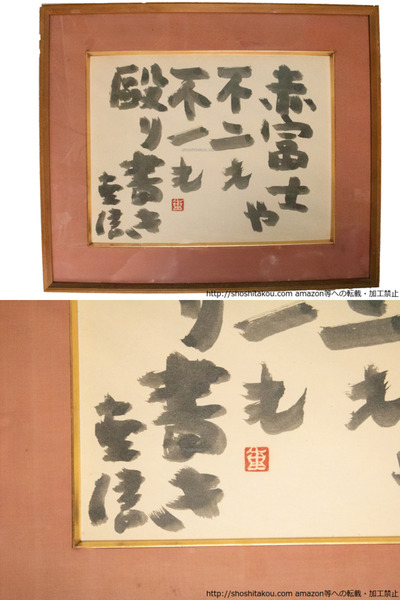 赤富士や
不二も
不一も
毆り書き
重信
重
http://shoshitakou.com amazon等への転載・加工禁止
二も
一も
り書き
重信
重
http://shoshitakou.com amazon等への転載・加工禁止